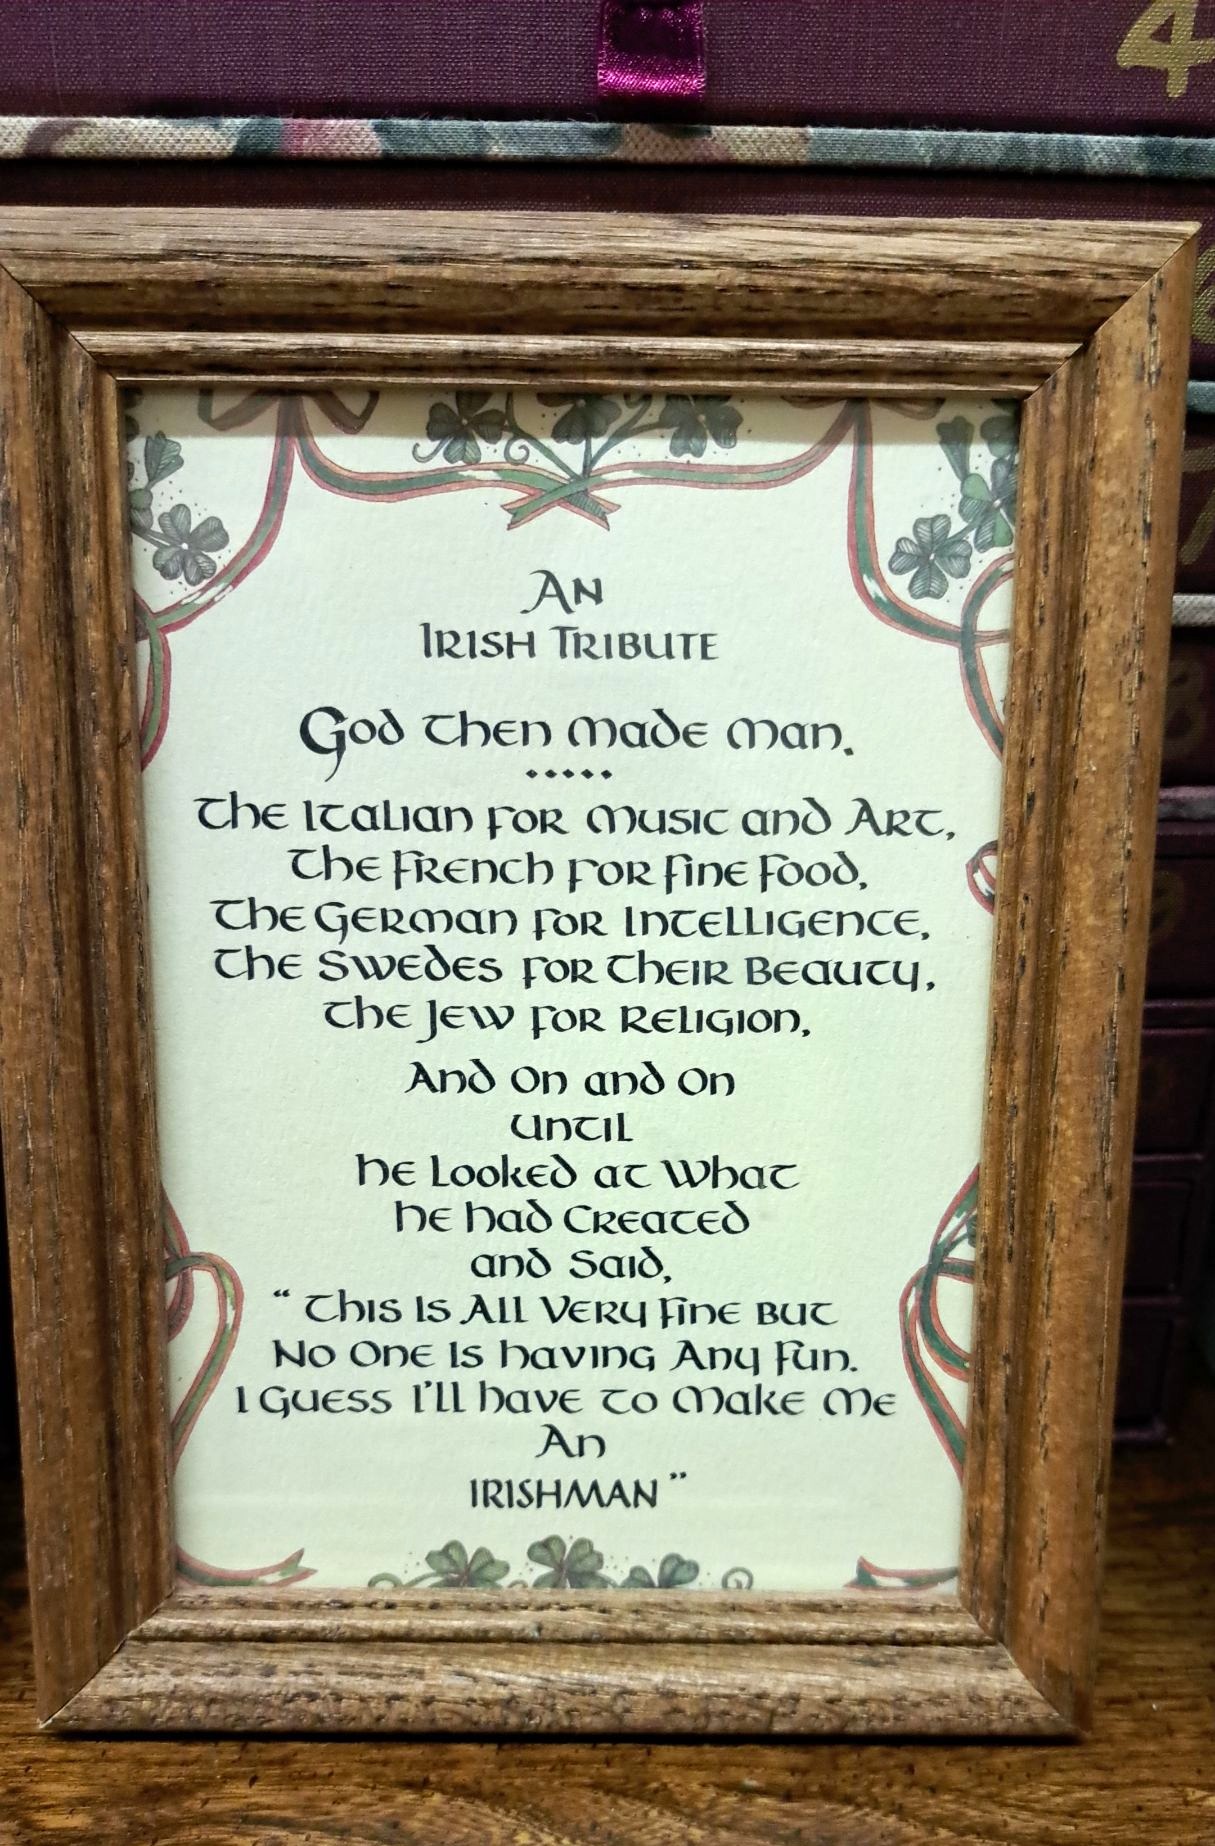 4
AN
IRISH TRIBUTE
God Then Made Man.
.....
The Italian for Music and Art,
The French for Fine Food,
The German for Intelligence,
The Swedes for Their Beauty,
The Jew for Religion,
And On and On
Until
He Looked at What
He Had Created
and Said,
“ This Is All Very Fine But
No One Is Having Any Fun.
I Guess I'll Have to Make Me
An
IRISHMAN ”